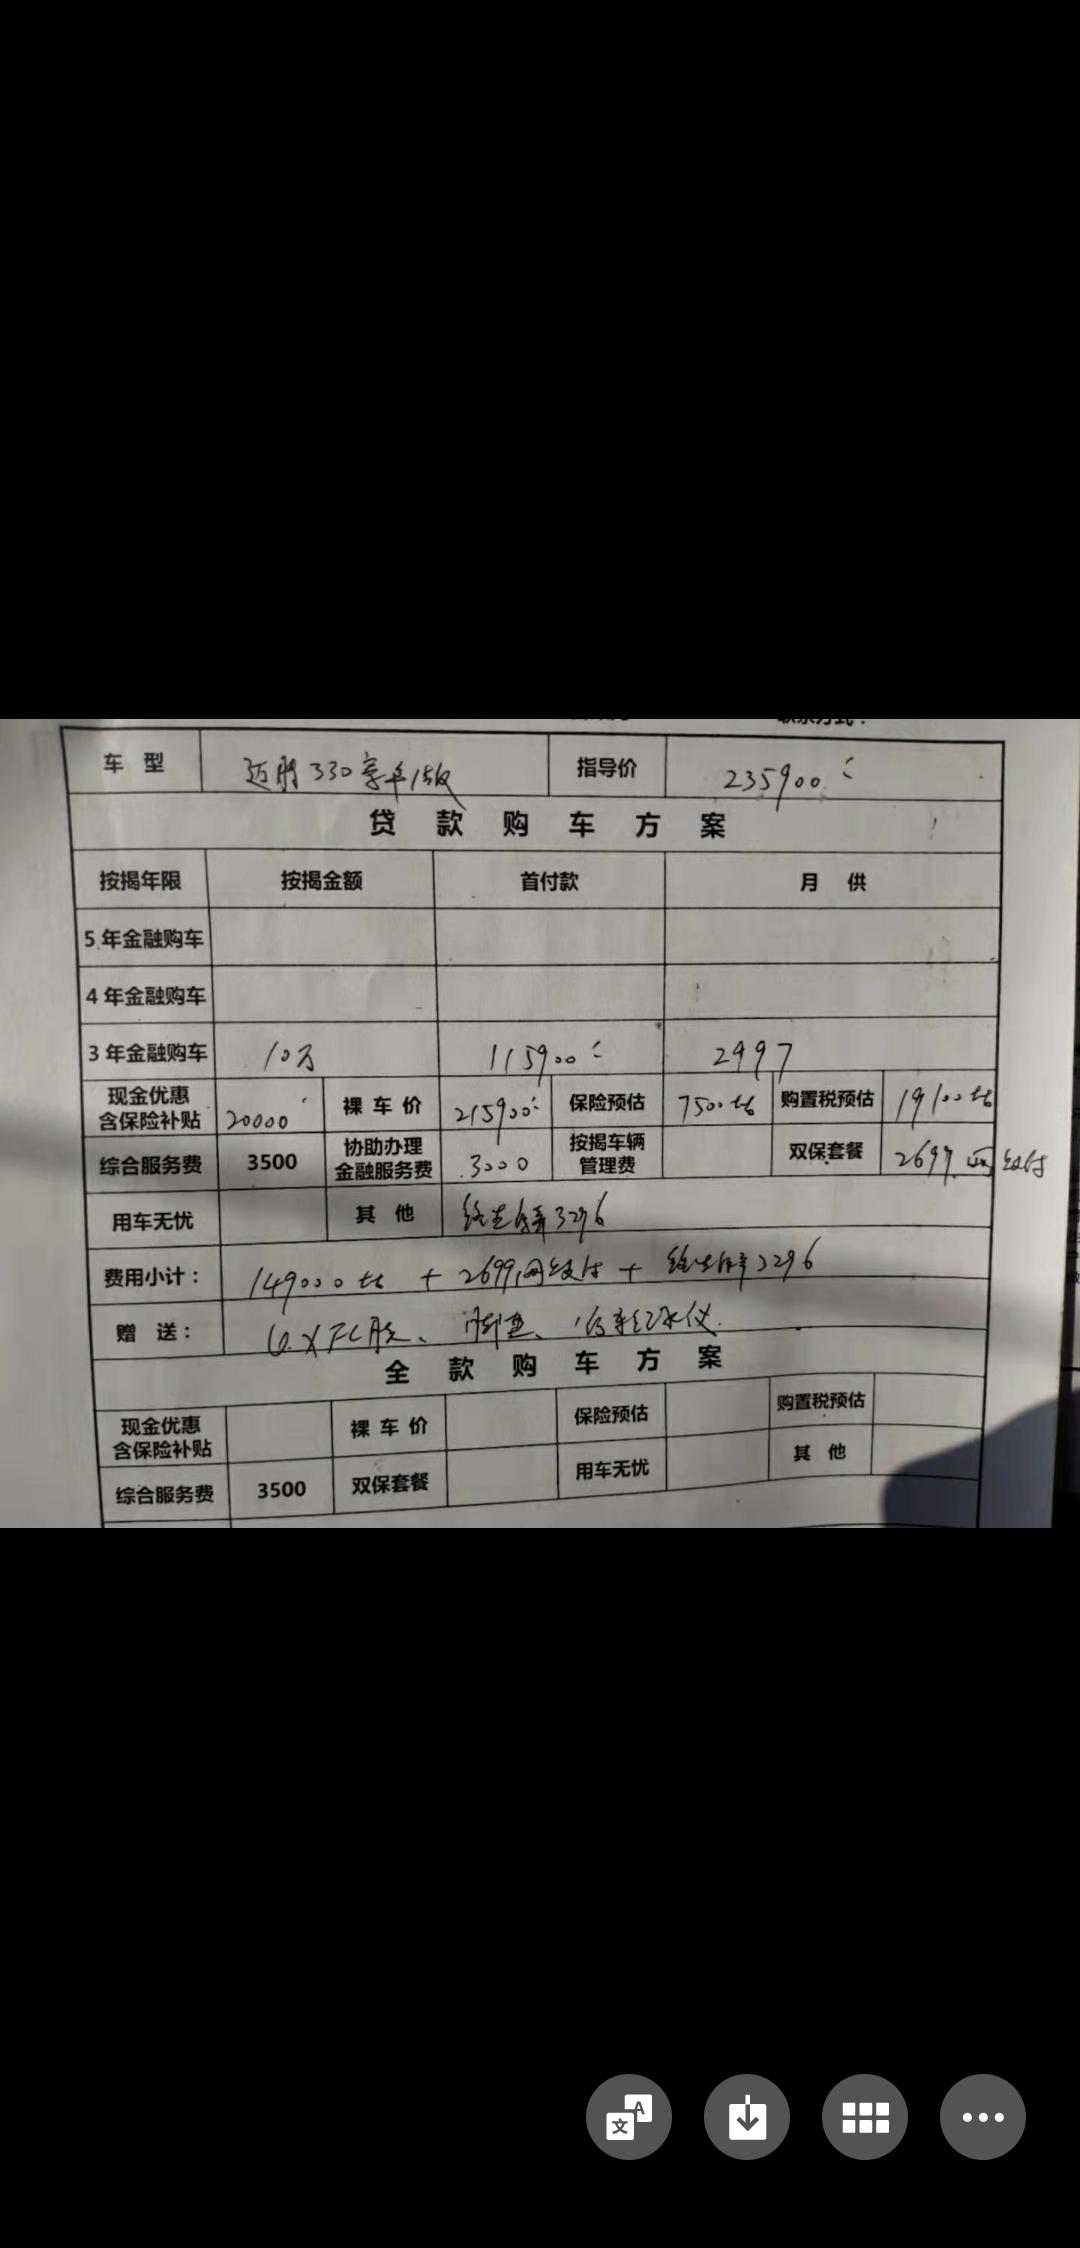 车 型 迈腾 330 豪华版 指导价 235900
贷 款 购 车 方 案
按揭年限 按揭金额 首付款 月 供
5 年金融购车
4 年金融购车
3 年金融购车 10万 115900 2997
现金优惠 含保险补贴 20000 裸 车 价 215900 保险预估 7500左右 购置税预估 19100左右
综合服务费 3500 协助办理 金融服务费 3000 按揭车辆 管理费 双保套餐 2699 网支付
用车无忧 其 他 终生保养3296
费用小计： 149000左右 + 2699网支付 + 终生保养3296
赠 送： 脚垫、行车记录仪.
全 款 购 车 方 案
现金优惠 含保险补贴 裸 车 价 保险预估 购置税预估
综合服务费 3500 双保套餐 用车无忧 其 他